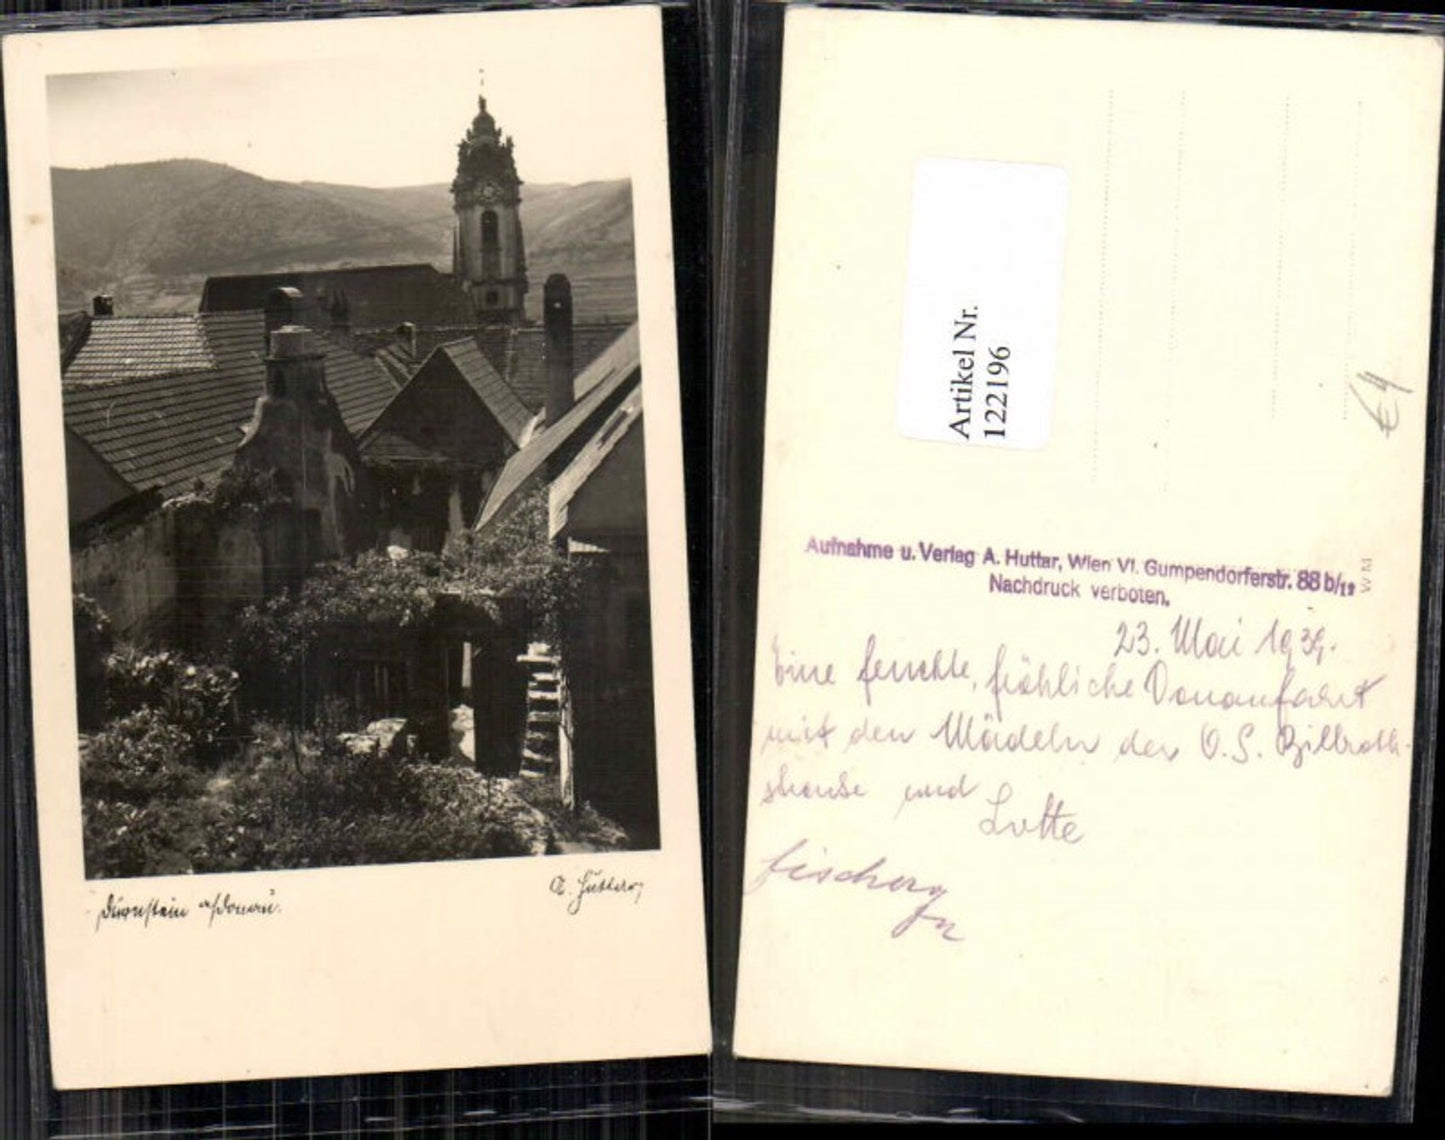 Dürnstein a/Donau.
A. Huttar
Artikel Nr.
122196
€4
Aufnahme u. Verlag A. Huttar, Wien VI. Gumpendorferstr. 88 b/12
Nachdruck verboten.
WM
23. Mai 1939.
Eine feuchte, fröhliche Donaufahrt
mit den Mädeln des O.S. Billroth-
hause und
Lotte